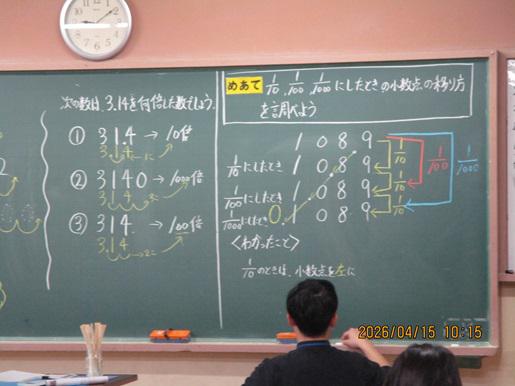 次の数は、3.14を何倍した数でしょう。
① 31.4 → 10倍
3.14
② 3140 → 1000倍
3.14
③ 314 → 100倍
3.14
めあて 1/10、1/100、1/1000にしたときの小数点の移り方
を調べよう
1089
1/10にしたとき 108.9
1/100にしたとき 10.89
1/1000にしたとき 0.1089 1.089
1/10 1/10 1/10 1/100 1/1000
<わかったこと>
1/10のときは、小数点を左に
2026/04/15 10:15